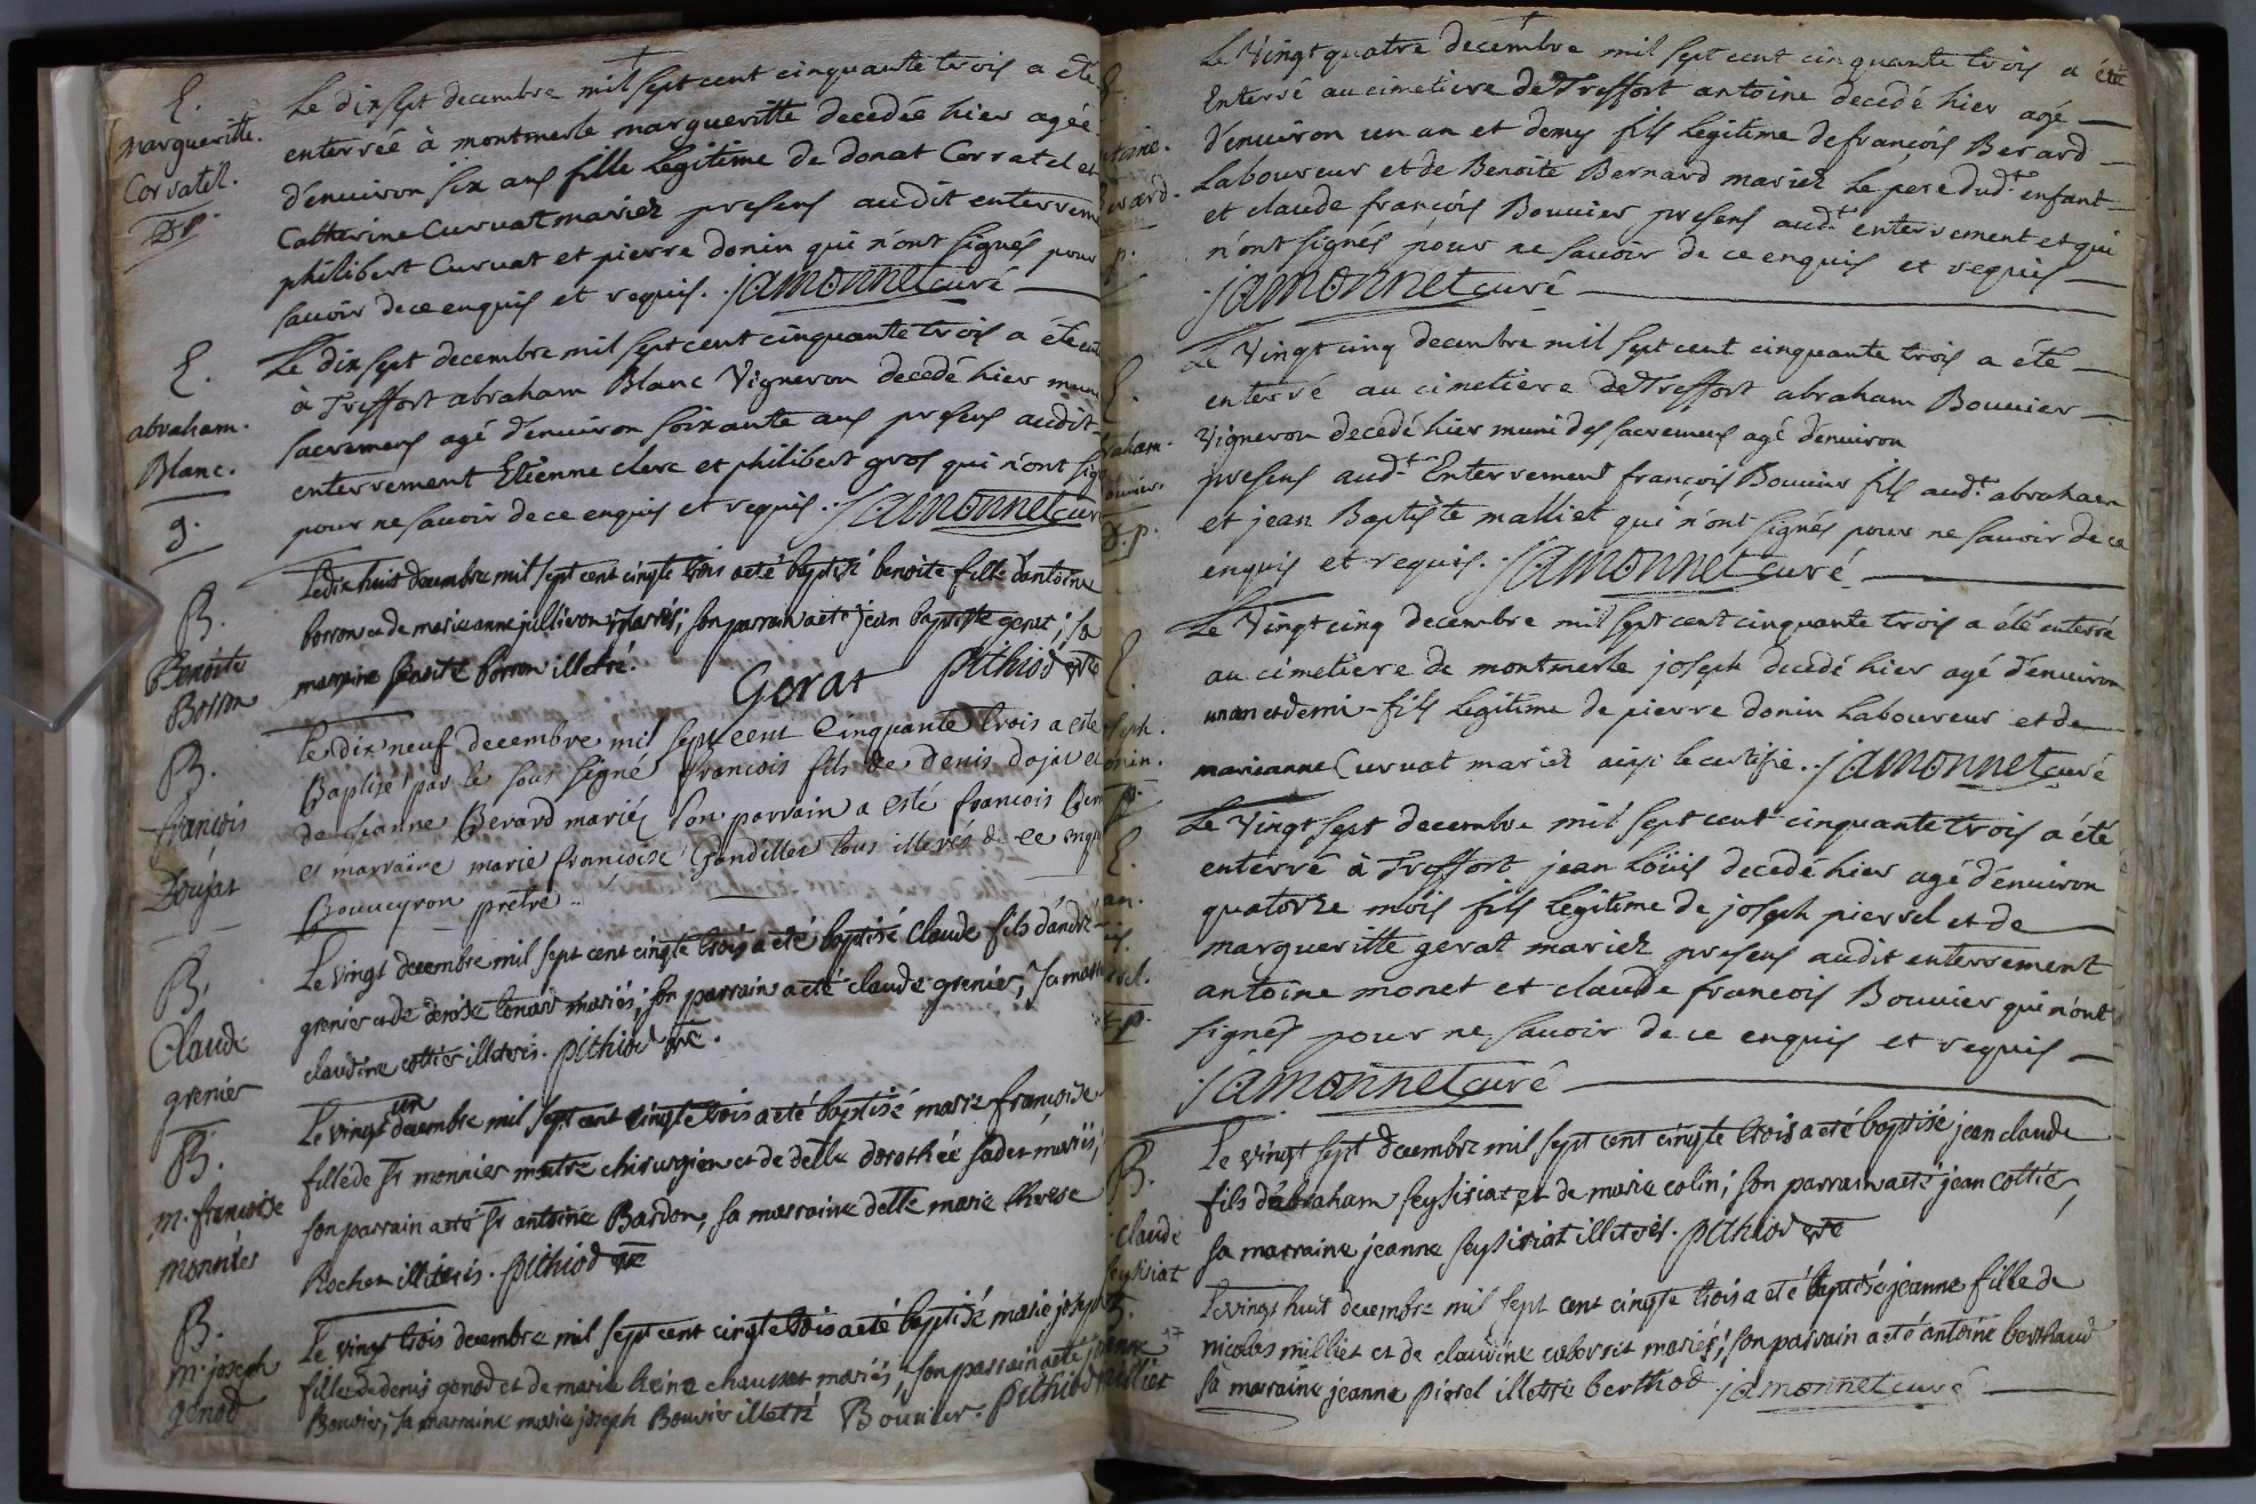 E.
Margueritte.
Corratel.
D.p.
Le dix sept decembre mil sept cent cinquante trois a été
enterréé à montmerle margueritte decedéé hier agéé
d'enuiron six ans fille legitime de donat Corratel et
Catherine Curuat mariez presens audit enterrem
philibert Curuat et pierre donin qui n'ont signés pour
sauoir de ce enquis et requis. jamonnet curé
E.
abraham.
Blanc.
g.
Le dix sept decembre mil sept cent cinquante trois a été ent
à Treffort abraham Blanc Vigneron decedé hier muni
sacremens agé d'enuiron soixante ans presens audit
enterrement Etienne clerc et philibert gros qui n'ont sig
pour ne sauoir de ce enquis et requis. jamonnet curé
B.
Benoite
Borron
Le dix huit decembre mil sept cent cinqte trois a eté baptisé benoite fille d'antoine
borron et de marie anne jullieron mariés; son parrain a eté jean baptiste gerat; sa
marraine benoite borron illetré.
Gerat pithiod ptre
B.
françois
Doujat
Le dix neuf decembre mil sept cent Cinquante trois a esté
Baptisé par le sous signé françois fils de denis dojat et
de jeanne Berard mariés son parrain a esté francois Ber
et marraine marie françoise Gandillet tous illetrés de ce enqu
Bouueyron prêtre
B.
Claude
grenier
Le vingt decembre mil sept cent cinqte trois a eté baptisé claude fils d'andré
grenier et de denise tenant mariés; son parrain a eté claude grenier; sa marr
claudine cottier illeteris. pithiod ptre.
B.
m. françoise
monnier
Le vingt un decembre mil sept cent cinqte trois a eté baptisé marie françoise
fille de sr monnier maitre chirurgien et de delle dorothée sadet mariés;
son parrain a eté sr antoine Bardon; sa marraine delle marie therese
Rochet illiteris. pithiod ptre
B.
m. joseph
genod
Le vingt trois decembre mil sept cent cinqte trois a eté baptisé marie joseph
fille de denis genod et de marie heine chausset mariés; son parrain a eté j
Bouvier; sa marraine marie joseph Bouvier illetré Bouuier. pithiod
E.
toine.
erard.
p.
Le Vingt quatre decembre mil sept cent cinquante trois a été
Enterré au cimetiere de Treffort antoine decedé hier agé
d'enuiron un an et demy fils legitime de françois Berard
Laboureur et de Benoite Bernard mariez le pere dudt enfant
et claude françois Bouuier presens audt enterrement et qui
n'ont signés pour ne sauoir de ce enquis et requis
jamonnet curé
E.
raham.
ouuier.
d.p.
Le Vingt cinq decembre mil sept cent cinquante trois a été
enterré au cimetiere de Treffort abraham Bouuier
Vigneron decedé hier muni des sacremens agé d'enuiron
presens audt Enterrement françois Bouuier fils audt abraham
et jean Baptiste malliet qui n'ont signés pour ne sauoir de ce
enquis et requis. jamonnet curé
E.
seph.
onin.
p.
Le Vingt cinq decembre mil sept cent cinquante trois a été enterré
au cimetiere de montmerle joseph decedé hier agé d'enuiron
un an et demi fils legitime de pierre donin Laboureur et de
marianne Curuat mariez ainsi le certifie. jamonnet curé
E.
an.
is.
rel.
d.p.
Le Vingt sept decembre mil sept cent cinquante trois a été
enterré à Treffort jean Loüis decedé hier agé d'enuiron
quatorze mois fils legitime de joseph pierrel et de
margueritte gerat mariez presens audit enterrement
antoine monet et claude francois Bouuier qui n'ont
signés pour ne sauoir de ce enquis et requis
jamonnet curé
B.
claude
seysiriat
Le vingt sept decembre mil sept cent cinqte trois a eté baptisé jean claude
fils d'abraham seysiriat et de marie colin; son parrain a eté jean cottier,
sa marraine jeanne seysiriat illiterés. pithiod ptre
B.
jeanne
milliet
17
Le vingt huit decembre mil sept cent cinqte trois a eté baptisé jeanne fille de
nicolas milliet et de claudine mariés; son parrain a eté antoine berthaud
sa marraine jeanne pierel illetré berthod jamonnet curé